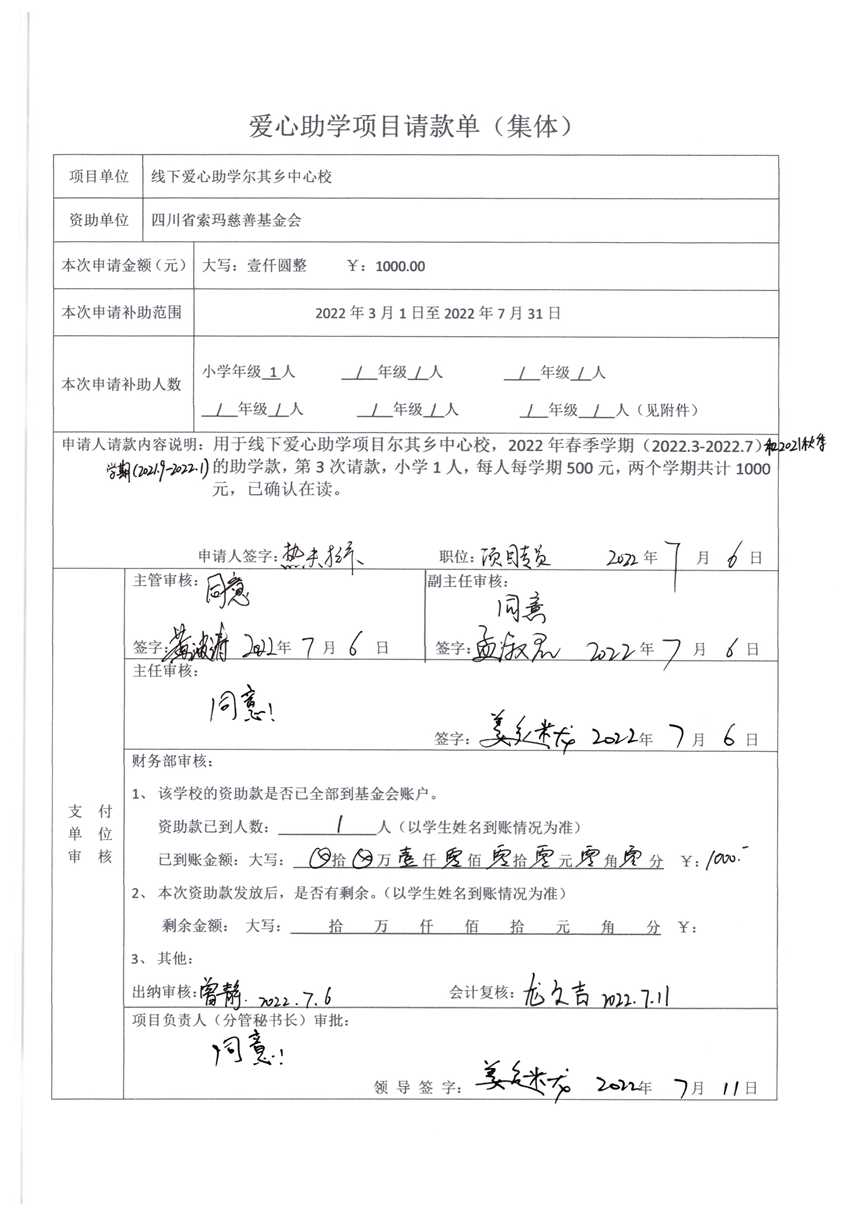 爱心助学项目请款单（集体）
项目单位 线下爱心助学尔其乡中心校
资助单位 四川省索玛慈善基金会
本次申请金额（元） 大写：壹仟圆整 ￥：1000.00
本次申请补助范围 2022 年 3 月 1 日至 2022 年 7 月 31 日
小学年级 1 人 / 年级 / 人 / 年级 / 人
本次申请补助人数
/ 年级 / 人 / 年级 / 人 / 年级 / 人（见附件）
申请人请款内容说明：用于线下爱心助学项目尔其乡中心校，2022 年春季学期（2022.3-2022.7）和2021秋季
学期(2021.9-2022.1)的助学款，第 3 次请款，小学 1 人，每人每学期 500 元，两个学期共计 1000
元，已确认在读。
申请人签字： 职位：项目专员 2022 年 7 月 6 日
主管审核：同意 副主任审核：
同意
签字： 2022年 7 月 6 日 签字：孟淑君 2022年 7 月 6 日
主任审核：
同意！
签字： 2022年 7 月 6 日
财务部审核：
1、 该学校的资助款是否已全部到基金会账户。
支 付
单 位
审 核
资助款已到人数： 1 人（以学生姓名到账情况为准）
已到账金额：大写： 拾 万 壹 仟 零 佰 零 拾 零 元 零 角 零 分 ￥：1000.-
2、 本次资助款发放后，是否有剩余。（以学生姓名到账情况为准）
剩余金额： 大写： 拾 万 仟 佰 拾 元 角 分 ￥：
3、 其他：
出纳审核：曾静. 2022.7.6 会计复核：龙文吉 2022.7.11
项目负责人（分管秘书长）审批：
同意！
领 导 签 字： 2022年 7月 11 日